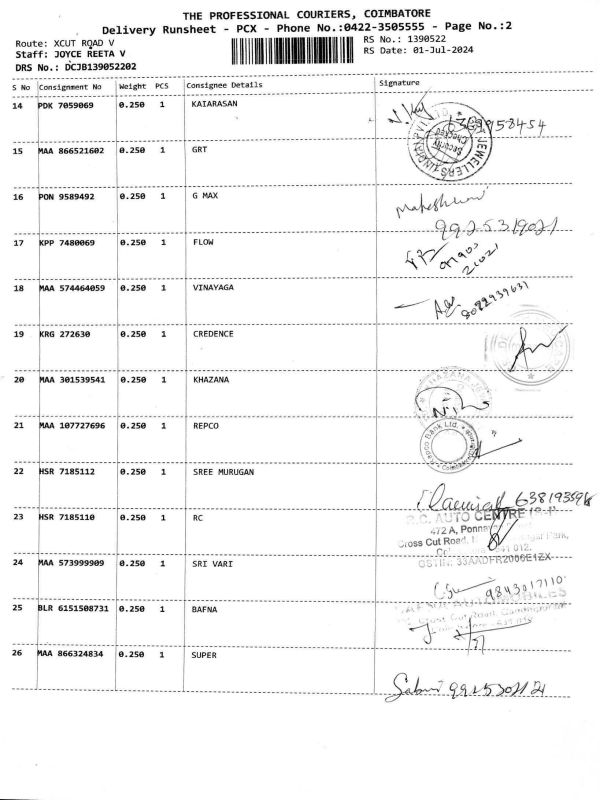 THE PROFESSIONAL COURIERS, COIMBATORE
Delivery Runsheet - PCX - Phone No.:0422-3505555 - Page No.:2
Route: XCUT ROAD V
RS No.: 1390522
Staff: JOYCE REETA V
RS Date: 01-Jul-2024
DRS No.: DCJB139052202
S No Consignment No Weight PCS Consignee Details Signature
14 PDK 7059069 0.250 1 KAIARASAN
15 MAA 866521602 0.250 1 GRT
Security
Checked
JEWELLERS
16 PON 9589492 0.250 1 G MAX
Maheshwari
9925319021
17 KPP 7480069 0.250 1 FLOW
18 MAA 574464059 0.250 1 VINAYAGA
19 KRG 272630 0.250 1 CREDENCE
20 MAA 301539541 0.250 1 KHAZANA
KHAZANA
21 MAA 107727696 0.250 1 REPCO
Repco Bank Ltd.
22 HSR 7185112 0.250 1 SREE MURUGAN
23 HSR 7185110 0.250 1 RC
R.C. AUTO CENTRE
472 A,
Cross Cut Road,
GSTIN: 33AADFR2006E1ZX
24 MAA 573999909 0.250 1 SRI VARI
9843017110
25 BLR 6151508731 0.250 1 BAFNA
26 MAA 866324834 0.250 1 SUPER